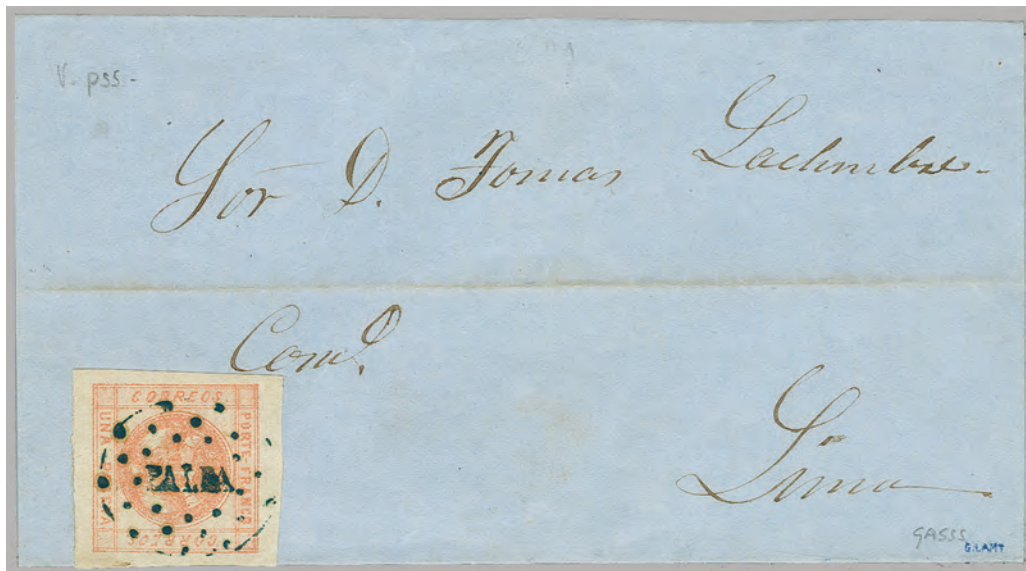 V- pss-
Sor D. Tomas Lachmbre-
Coml.
Lima
CORREOS.
UNA
PORTE FRANCO
CORREOS
GASSS
G.LAMY